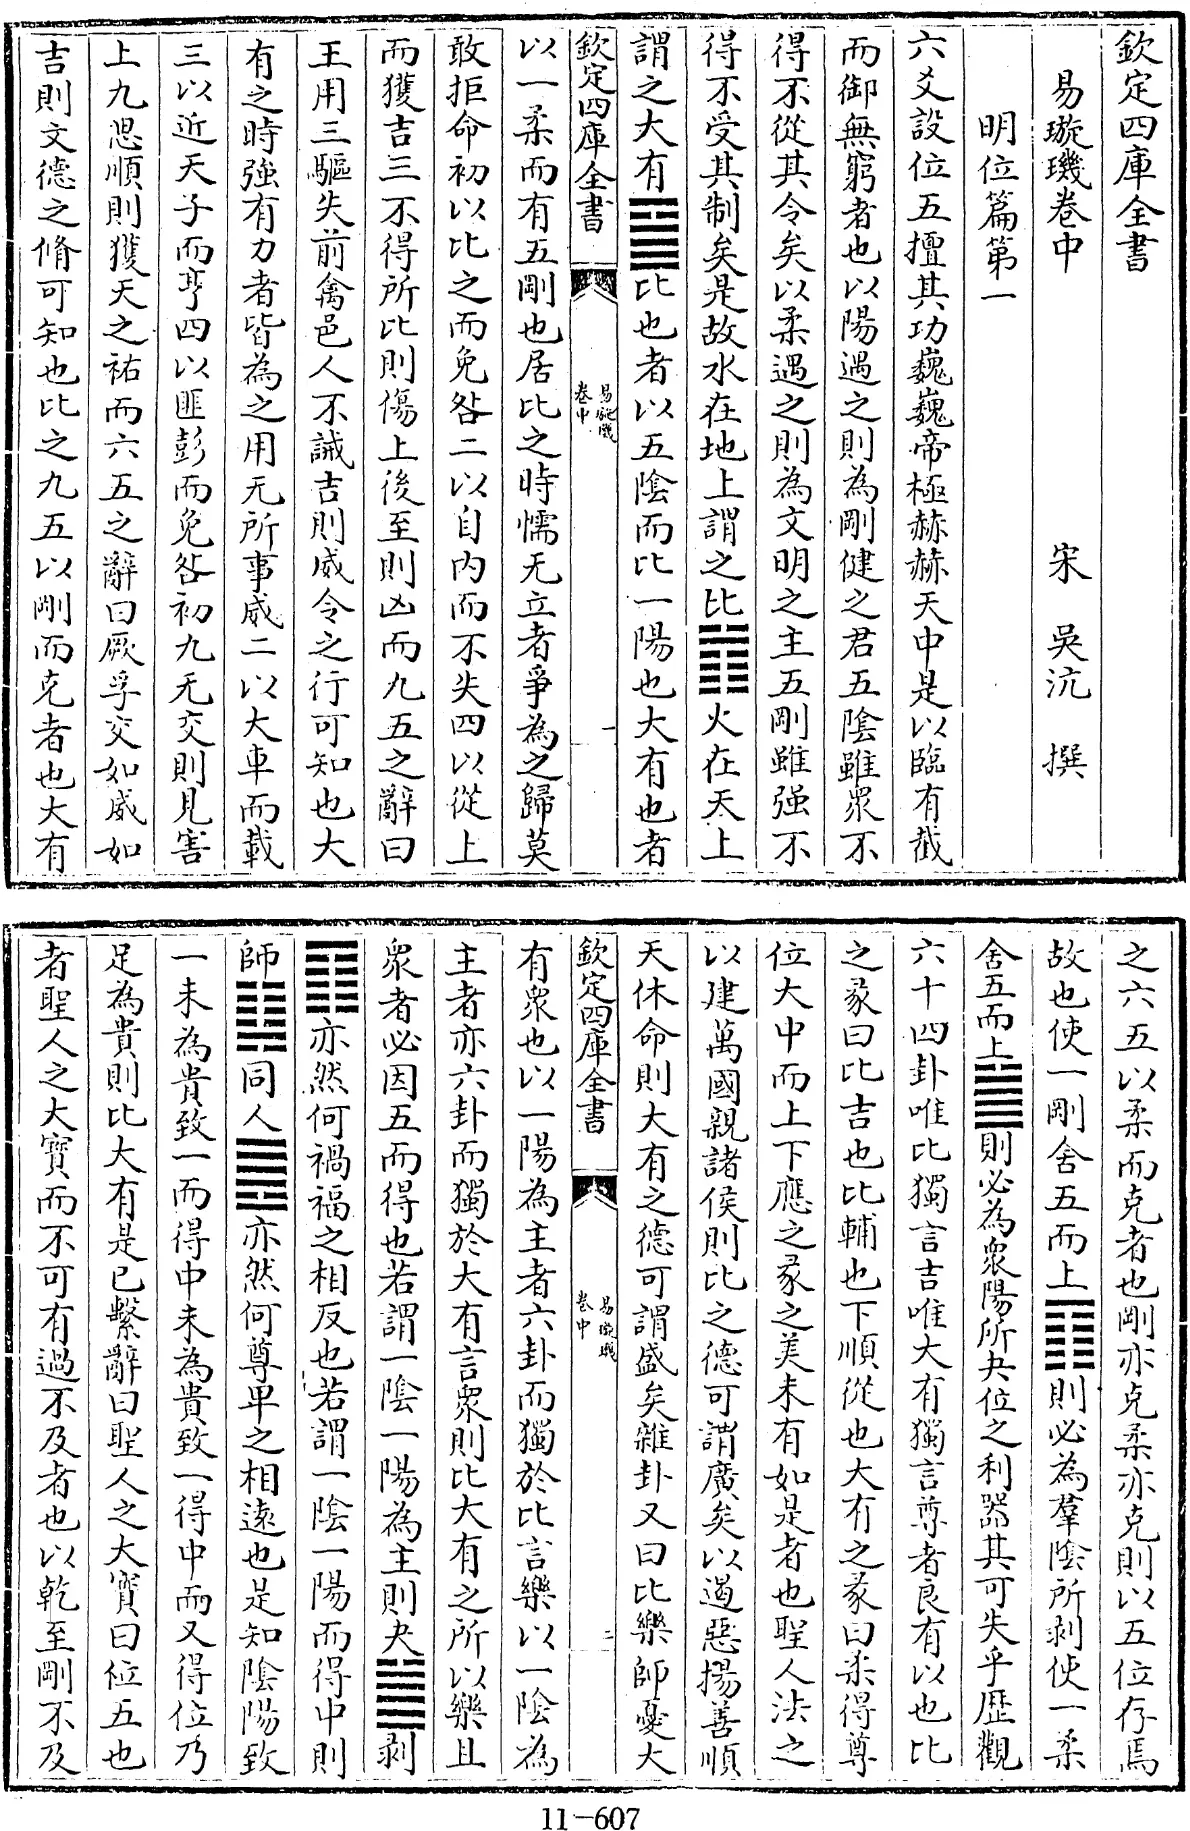 欽定四庫全書
易璇璣卷中
宋 吳沆 撰
明位篇第一
六爻設位五擅其功巍巍帝極赫赫天中是以臨有截
而御無窮者也以陽遇之則為剛健之君五陰雖衆不
得不從其令矣以柔遇之則為文明之主五剛雖强不
得不受其制矣是故水在地上謂之比䷇火在天上
謂之大有䷍比也者以五陰而比一陽也大有也者
欽定四庫全書
易璇璣
卷中
一
以一柔而有五剛也居比之時懦无立者爭為之歸莫
敢拒命初以比之而免咎二以自内而不失四以從上
而獲吉三不得所比則傷上後至則凶而九五之辭曰
王用三驅失前禽邑人不誡吉則威令之行可知也大
有之時強有力者皆為之用无所事威二以大車而載
三以近天子而亨四以匪彭而免咎初九无交則見害
上九思順則獲天之祐而六五之辭曰厥孚交如威如
吉則文德之脩可知也比之九五以剛而克者也大有
之六五以柔而克者也剛亦克柔亦克則以五位存焉
故也使一剛舍五而上䷖則必為羣陰所剥使一柔
舍五而上䷪則必為衆陽所夬位之利器其可失乎歷觀
六十四卦唯比獨言吉唯大有獨言尊者良有以也比
之彖曰比吉也比輔也下順從也大有之彖曰柔得尊
位大中而上下應之彖之美未有如是者也聖人法之
以建萬國親諸侯則比之德可謂廣矣以遏惡揚善順
天休命則大有之德可謂盛矣雜卦又曰比樂師憂大
欽定四庫全書
易璇璣
卷中
二
有衆也以一陽為主者六卦而獨於比言樂以一陰為
主者亦六卦而獨於大有言衆則比大有之所以樂且
衆者必因五而得也若謂一陰一陽為主則夬䷪剥
䷖亦然何禍福之相反也若謂一陰一陽而得中則
師䷆同人䷌亦然何尊卑之相遠也是知陰陽致
一未為貴致一而得中未為貴致一得中而又得位乃
足為貴則比大有是已繫辭曰聖人之大寶曰位五也
者聖人之大寶而不可有過不及者也以乾至剛不及
11-607